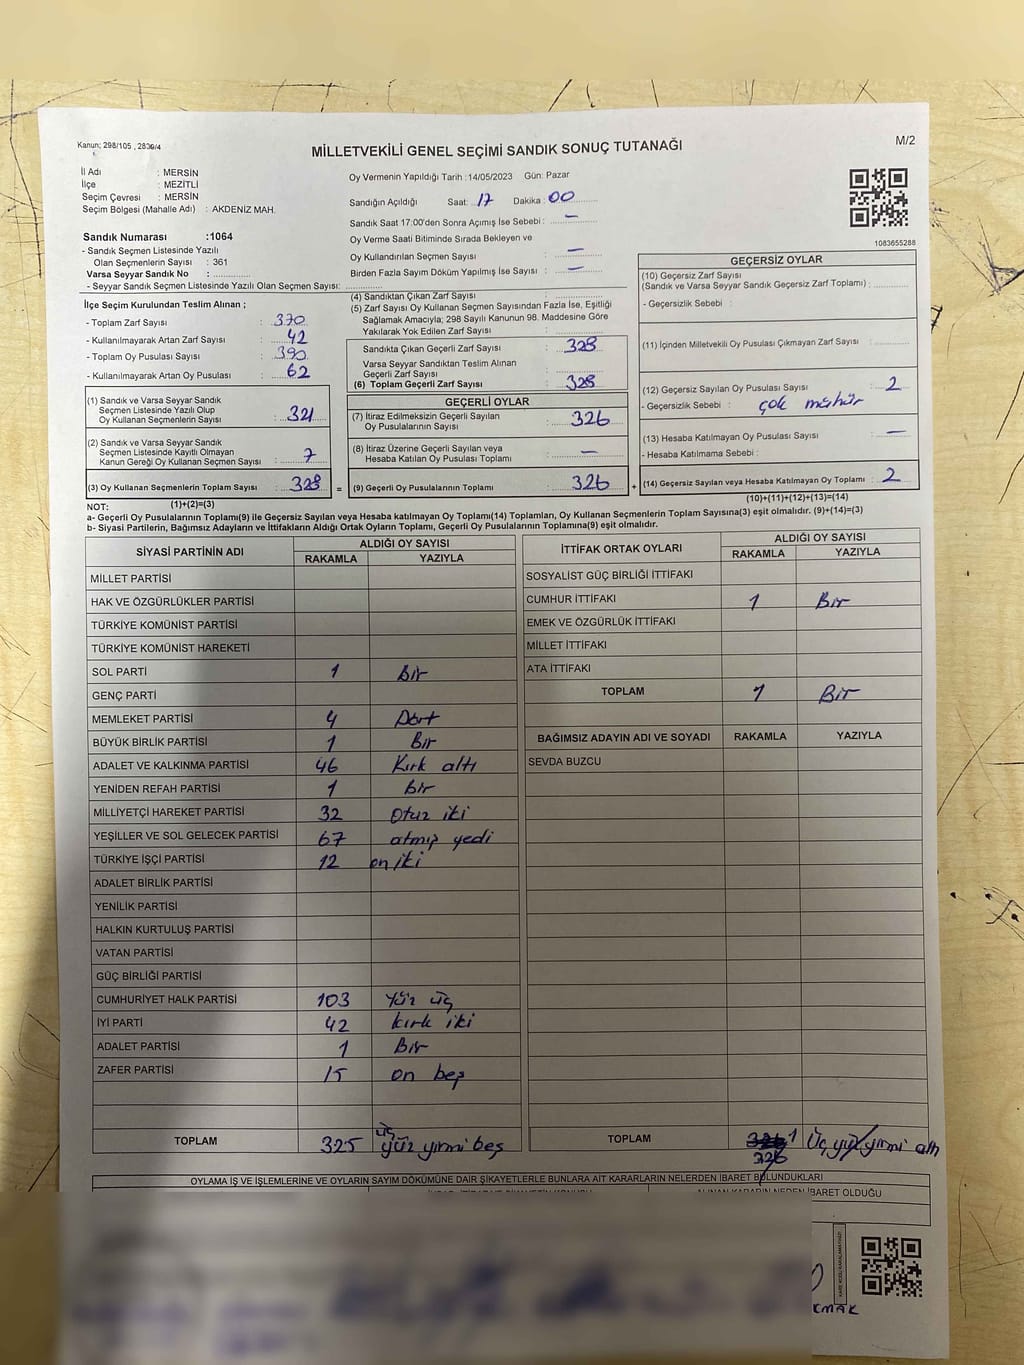 Kanun; 298/105 , 2839/4
M/2
MİLLETVEKİLİ GENEL SEÇİMİ SANDIK SONUÇ TUTANAĞI
İl Adı : MERSİN
İlçe : MEZİTLİ
Seçim Çevresi : MERSİN
Seçim Bölgesi (Mahalle Adı) : AKDENİZ MAH.
Oy Vermenin Yapıldığı Tarih :14/05/2023 Gün: Pazar
Sandığın Açıldığı Saat: 17 Dakika: 00
Sandık Saat 17:00'den Sonra Açılmış İse Sebebi : —
Oy Verme Saati Bitiminde Sırada Bekleyen ve
Oy Kullandırılan Seçmen Sayısı : —
Birden Fazla Sayım Döküm Yapılmış İse Sayısı : —
1083655288
Sandık Numarası :1064
- Sandık Seçmen Listesinde Yazılı
Olan Seçmenlerin Sayısı : 361
Varsa Seyyar Sandık No :
- Seyyar Sandık Seçmen Listesinde Yazılı Olan Seçmen Sayısı:
İlçe Seçim Kurulundan Teslim Alınan ;
- Toplam Zarf Sayısı : 370
- Kullanılmayarak Artan Zarf Sayısı : 42
- Toplam Oy Pusulası Sayısı : 390
- Kullanılmayarak Artan Oy Pusulası : 62
(1) Sandık ve Varsa Seyyar Sandık
Seçmen Listesinde Yazılı Olup
Oy Kullanan Seçmenlerin Sayısı : 321
(2) Sandık ve Varsa Seyyar Sandık
Seçmen Listesinde Kayıtlı Olmayan
Kanun Gereği Oy Kullanan Seçmen Sayısı : 7
(3) Oy Kullanan Seçmenlerin Toplam Sayısı : 328
(1)+(2)=(3)
(4) Sandıktan Çıkan Zarf Sayısı :
(5) Zarf Sayısı Oy Kullanan Seçmen Sayısından Fazla İse, Eşitliği
Sağlamak Amacıyla; 298 Sayılı Kanunun 98. Maddesine Göre
Yakılarak Yok Edilen Zarf Sayısı :
Sandıkta Çıkan Geçerli Zarf Sayısı : 328
Varsa Seyyar Sandıktan Teslim Alınan
Geçerli Zarf Sayısı :
(6) Toplam Geçerli Zarf Sayısı : 328
GEÇERLİ OYLAR
(7) İtiraz Edilmeksizin Geçerli Sayılan
Oy Pusulalarının Sayısı : 326
(8) İtiraz Üzerine Geçerli Sayılan veya
Hesaba Katılan Oy Pusulası Toplamı : —
= (9) Geçerli Oy Pusulalarının Toplamı : 326 +
GEÇERSİZ OYLAR
(10) Geçersiz Zarf Sayısı
(Sandık ve Varsa Seyyar Sandık Geçersiz Zarf Toplamı) :
- Geçersizlik Sebebi :
(11) İçinden Milletvekili Oy Pusulası Çıkmayan Zarf Sayısı :
(12) Geçersiz Sayılan Oy Pusulası Sayısı : 2
- Geçersizlik Sebebi : çok mühür
(13) Hesaba Katılmayan Oy Pusulası Sayısı : —
- Hesaba Katılmama Sebebi :
(14) Geçersiz Sayılan veya Hesaba Katılmayan Oy Toplamı : 2
(10)+(11)+(12)+(13)=(14)
NOT:
a- Geçerli Oy Pusulalarının Toplamı(9) ile Geçersiz Sayılan veya Hesaba katılmayan Oy Toplamı(14) Toplamları, Oy Kullanan Seçmenlerin Toplam Sayısına(3) eşit olmalıdır. (9)+(14)=(3)
b- Siyasi Partilerin, Bağımsız Adayların ve İttifakların Aldığı Ortak Oyların Toplamı, Geçerli Oy Pusulalarının Toplamına(9) eşit olmalıdır.
SİYASİ PARTİNİN ADI ALDIĞI OY SAYISI
RAKAMLA YAZIYLA
MİLLET PARTİSİ
HAK VE ÖZGÜRLÜKLER PARTİSİ
TÜRKİYE KOMÜNİST PARTİSİ
TÜRKİYE KOMÜNİST HAREKETİ
SOL PARTİ 1 Bir
GENÇ PARTİ
MEMLEKET PARTİSİ 4 Dört
BÜYÜK BİRLİK PARTİSİ 1 Bir
ADALET VE KALKINMA PARTİSİ 46 Kırk altı
YENİDEN REFAH PARTİSİ 1 bir
MİLLİYETÇİ HAREKET PARTİSİ 32 Otuz iki
YEŞİLLER VE SOL GELECEK PARTİSİ 67 atmış yedi
TÜRKİYE İŞÇİ PARTİSİ 12 on iki
ADALET BİRLİK PARTİSİ
YENİLİK PARTİSİ
HALKIN KURTULUŞ PARTİSİ
VATAN PARTİSİ
GÜÇ BİRLİĞİ PARTİSİ
CUMHURİYET HALK PARTİSİ 103 Yüz üç
İYİ PARTİ 42 kırk iki
ADALET PARTİSİ 1 Bir
ZAFER PARTİSİ 15 on beş
TOPLAM 325 üç yüz yirmi beş
İTTİFAK ORTAK OYLARI ALDIĞI OY SAYISI
RAKAMLA YAZIYLA
SOSYALİST GÜÇ BİRLİĞİ İTTİFAKI
CUMHUR İTTİFAKI 1 Bir
EMEK VE ÖZGÜRLÜK İTTİFAKI
MİLLET İTTİFAKI
ATA İTTİFAKI
TOPLAM 1 Bir
BAĞIMSIZ ADAYIN ADI VE SOYADI RAKAMLA YAZIYLA
SEVDA BUZCU
TOPLAM 326 1 Üç yüz yirmi altı
326
OYLAMA İŞ VE İŞLEMLERİNE VE OYLARIN SAYIM DÖKÜMÜNE DAİR ŞİKAYETLERLE BUNLARA AİT KARARLARIN NELERDEN İBARET BULUNDUKLARI
ALINAN KARARIN NEDEN İBARET OLDUĞU